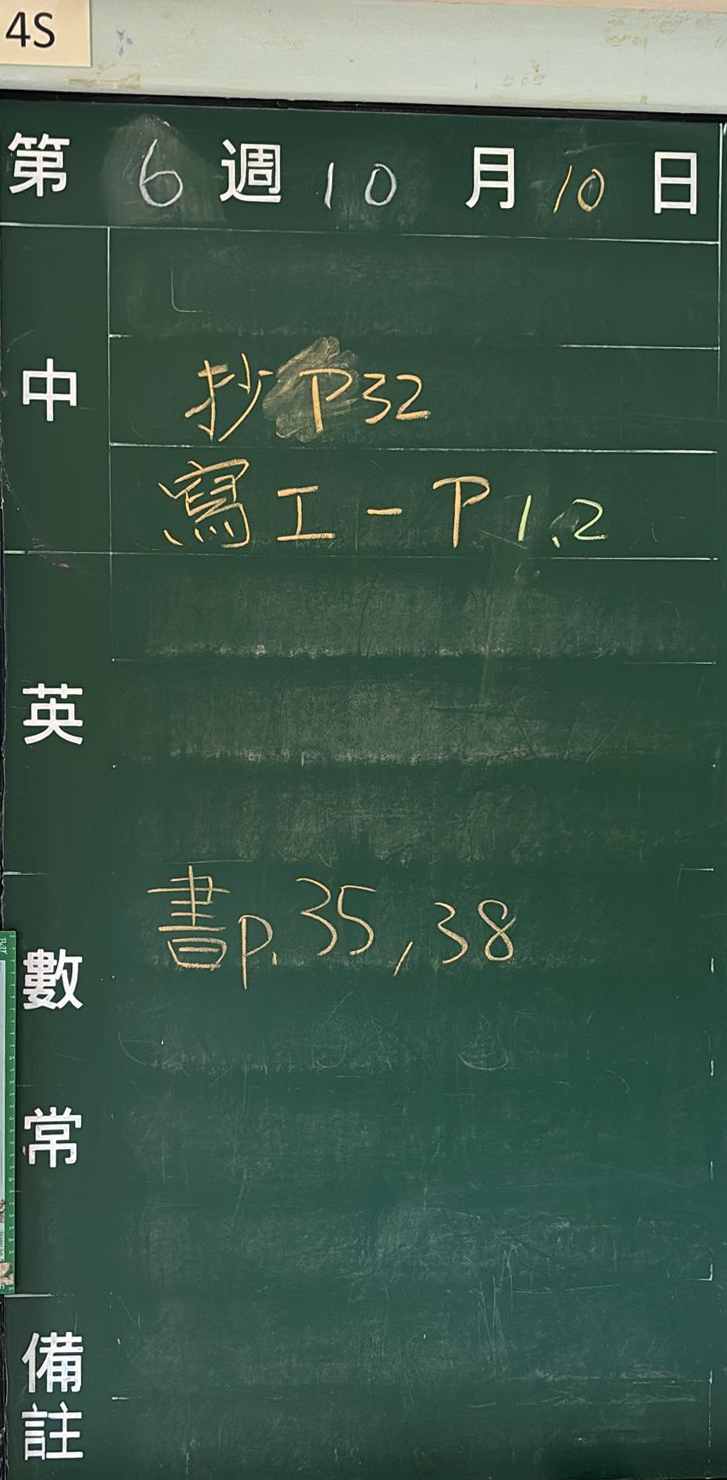 4S
第 6 週 10 月 10 日
中
抄 P32
寫工一P 1.2
英
數
書p. 35, 38
常
備註